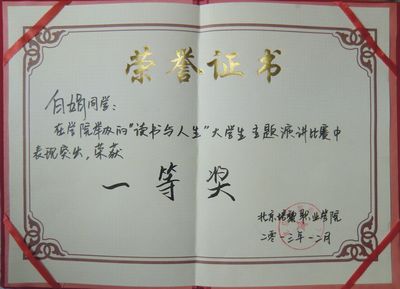 荣誉证书
白娟同学：
在学院举办的“读书与人生”大学生主题演讲比赛中
表现突出，荣获
一等奖
北京培黎职业学院
二零一三年一二月